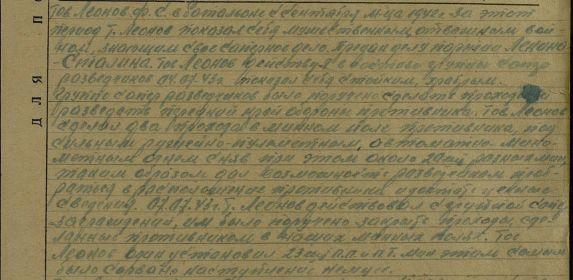 Тов Леонов Ф. С. в батальоне с сентября м-ца 1942 г. За этот
период т. Леонов показал себя мужественным отважным вои-
ном, знающим свое саперное дело. Предан делу партии Ленина
-Сталина. Тов Леонов действуя в составе группы сапер
разведчиков 04.07.43г. показал себя стойким, храбрым.
Группе сапер разведчиков было поручено сделать проходы
разведать передний край обороны противника. Тов Леонов
сделал два прохода в минном поле противника, под
сильным ружейно-пулеметным, автоматно-мино-
метным огнем сняв при этом около 20 шт разных мин,
таким образом дал возможность разведчикам проб-
раться в расположение противника и достать ценные
сведения. 07.07.43г. т. Леонов действовал с группой сапер
заграждений, им было поручено закрыть проходы, сде-
ланные противником в наших минных полях. Тов
Леонов один установил 23 шт п.т. мин этим самым
было сорвано наступление немцев.
ДЛЯ П